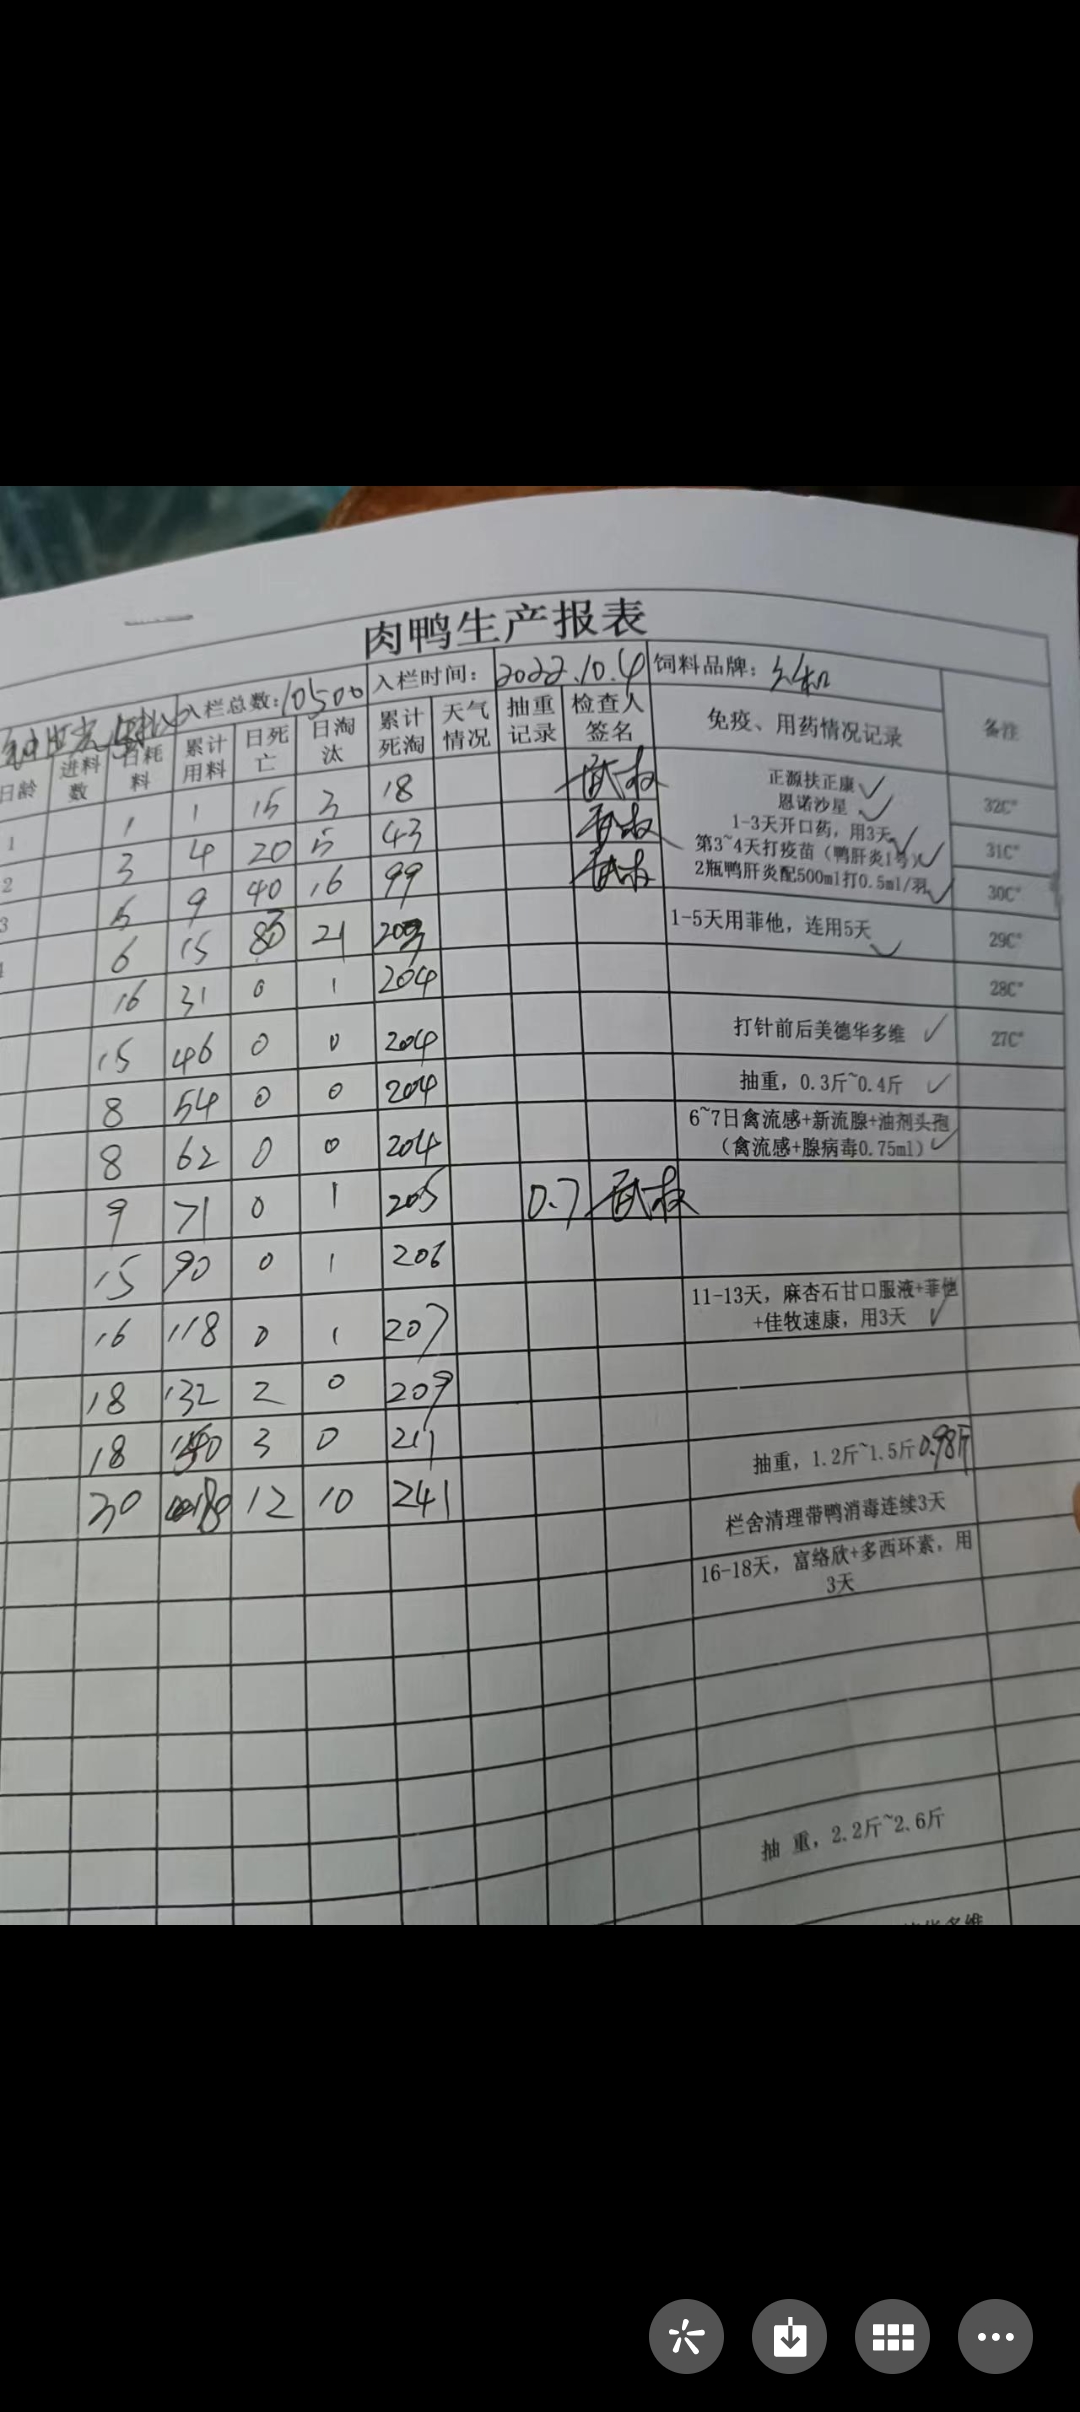 肉鸭生产报表
入栏总数:10500 入栏时间: 2022.10.4 饲料品牌:
日龄 进料数 日耗料 累计用料 日死亡 日淘汰 累计死淘 天气情况 抽重记录 检查人签名 免疫、用药情况记录 备注
1 1 1 15 3 18 正源扶正康 32C°
恩诺沙星
2 3 4 20 5 43 1-3天开口药，用3天 31C°
第3~4天打疫苗（鸭肝炎1号）
3 5 9 40 16 99 2瓶鸭肝炎配500ml打0.5ml/羽 30C°
6 15 21 1-5天用菲他，连用5天 29C°
16 31 0 1 204 28C°
15 46 0 0 204 打针前后美德华多维 27C°
8 54 0 0 204 抽重，0.3斤~0.4斤
8 62 0 0 204 6~7日禽流感+新流腺+油剂头孢
（禽流感+腺病毒0.75ml）
9 71 0 1 205 0.7
15 90 0 1 206
16 118 0 1 207 11-13天，麻杏石甘口服液+菲他
+佳牧速康，用3天
18 132 2 0 209
18 3 0 211 抽重，1.2斤~1.5斤 0.98斤
30 12 10 241 栏舍清理带鸭消毒连续3天
16-18天，富络欣+多西环素，用
3天
抽 重，2.2斤~2.6斤